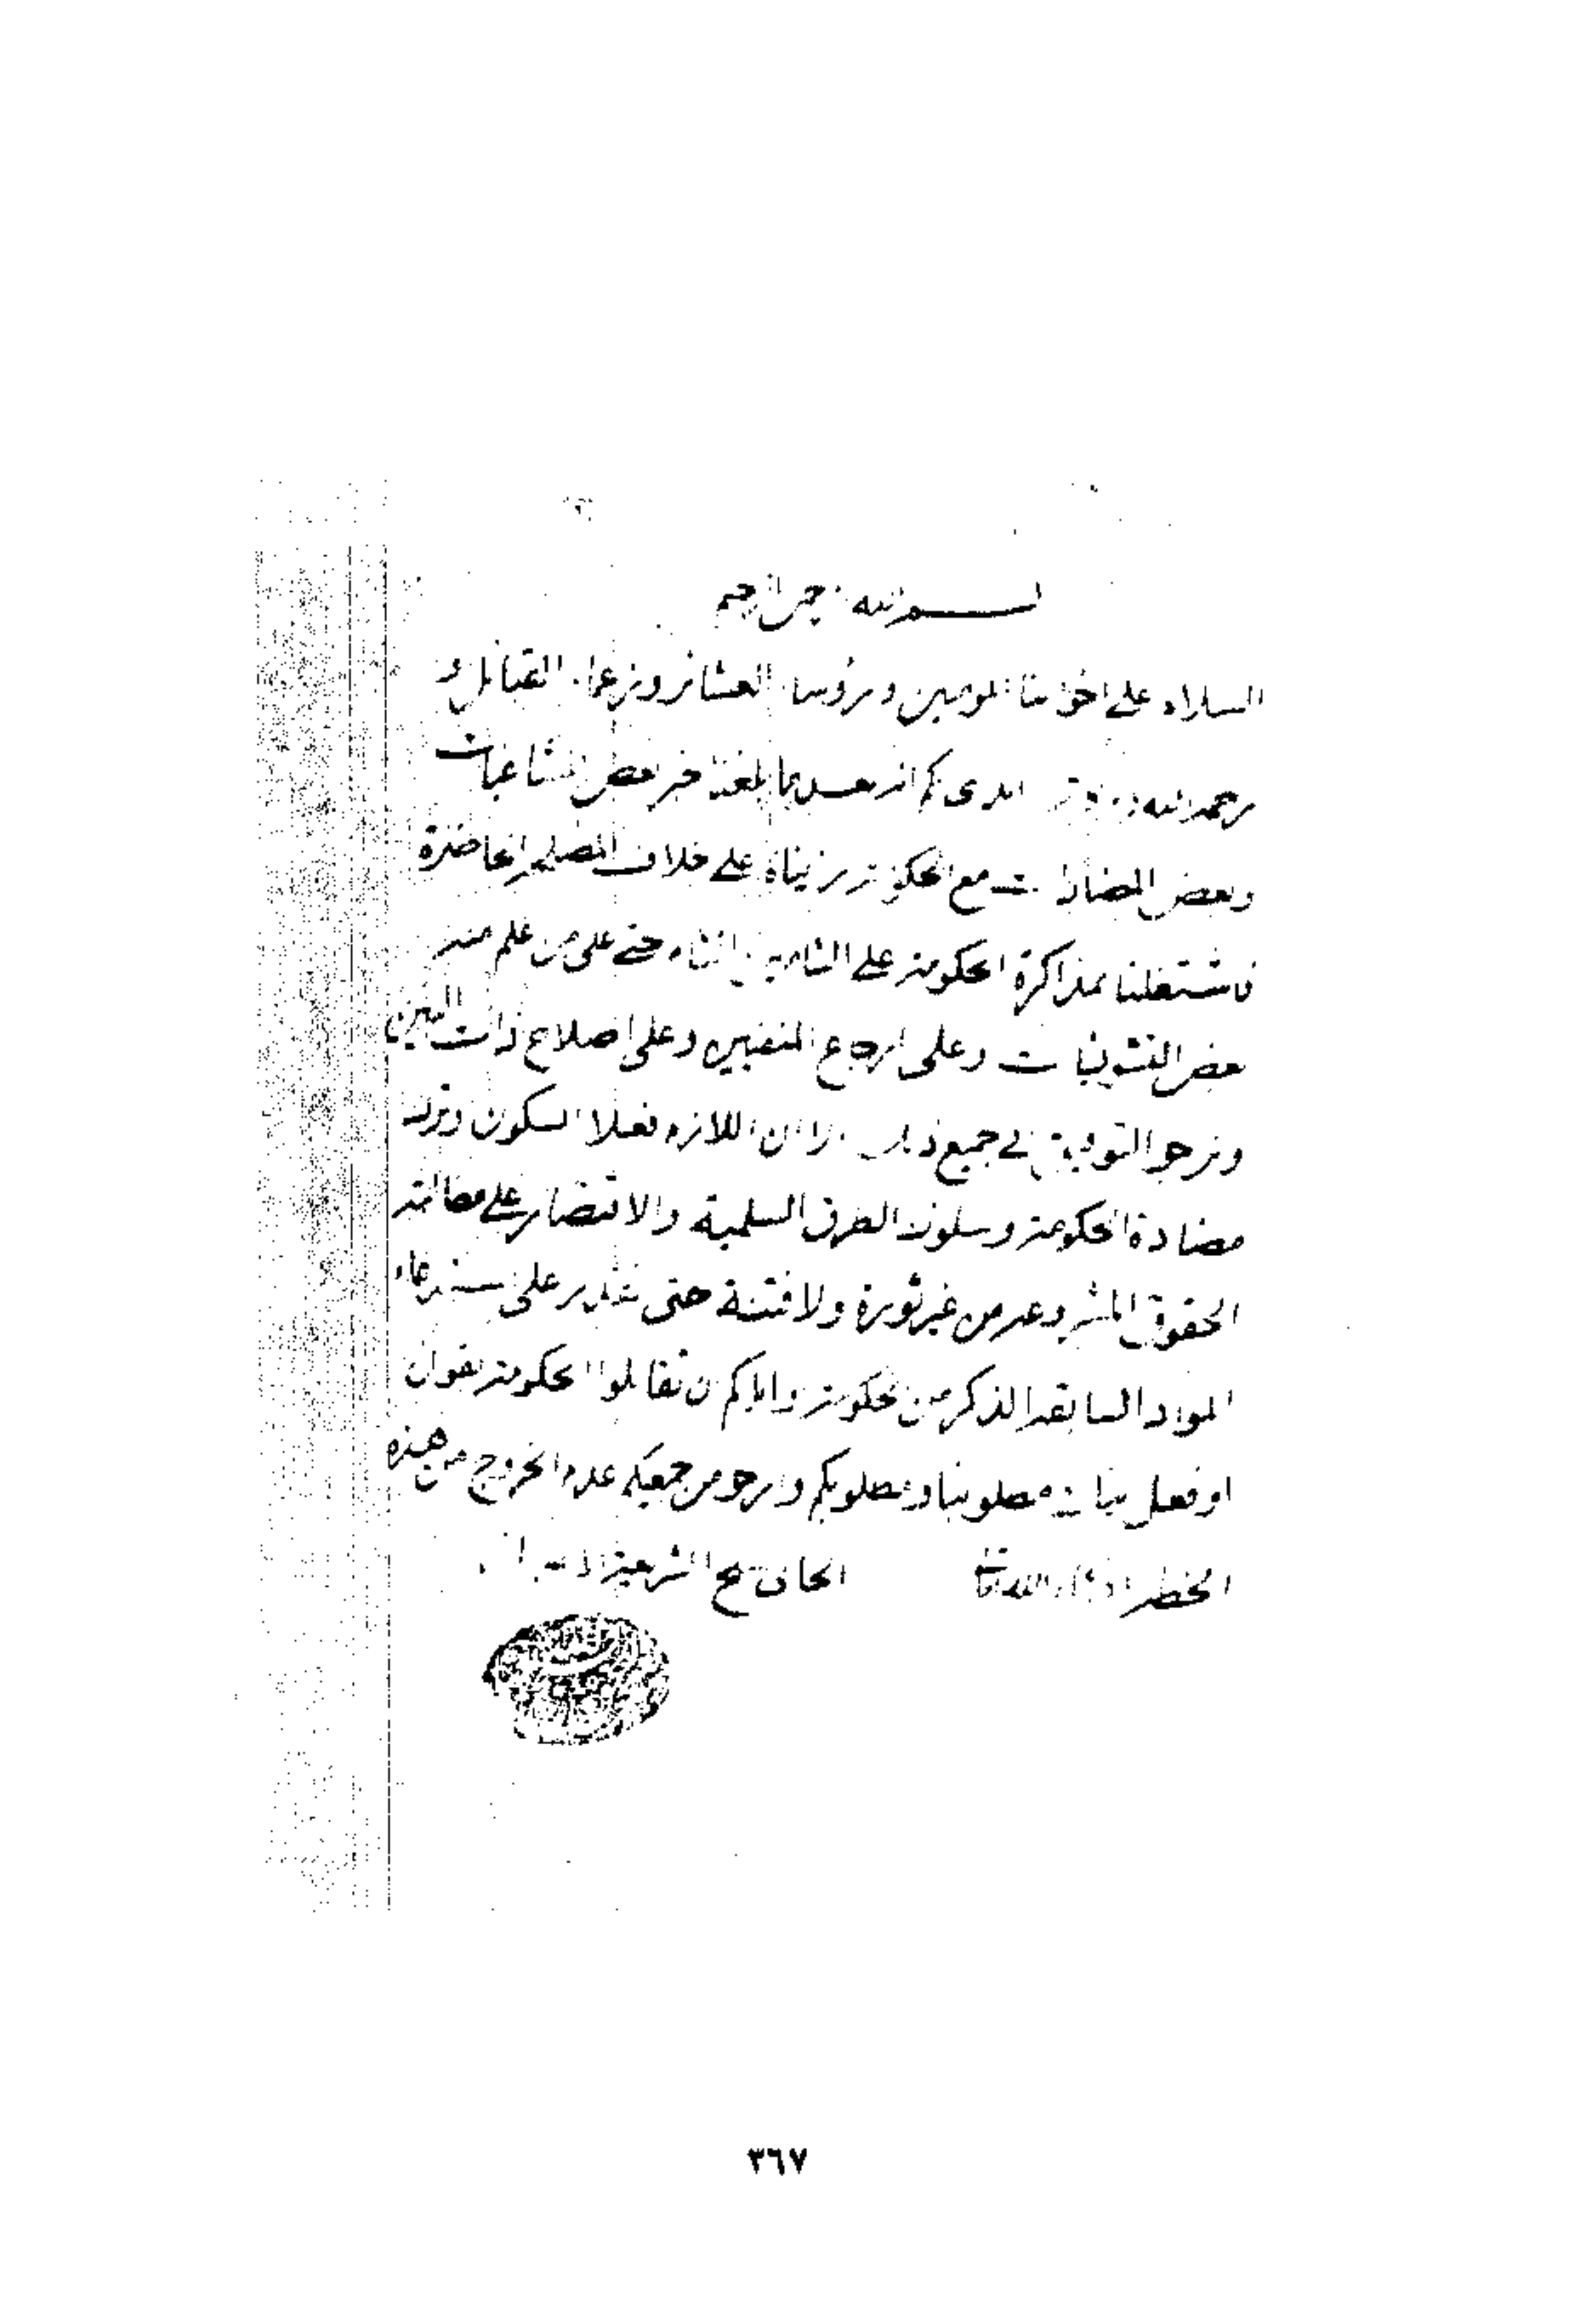 بسم الله الرحمن الرحيم
السلام على اخواننا المومنين ورؤساء العشائر وزعماء القبائل و
رحمة الله وبركاته ابدى لكم انه بعد ما بلغنا خبر بعض المشاغبات
وبعض المضادات مع الحكومة على خلاف المصلحة الحاضرة
فاشتغلنا بمذاكرة الحكومة على التامين حتى على من علم منه
بعض التشويقات وعلى ارجاع المنفيين وعلى اصلاح ذات البين
ونرجو التوفيق في جميع ذلك الا ان اللازم فعلا السكون وترك
مضادة الحكومة وسلوك الطرق السلمية والاقتصار على مطالبة
الحقوق المشروعة من غير ثورة ولا فتنة حتى نقدر على استدعاء
المواد السابقة الذكر من الحكومة واياكم ان تقابلوا الحكومة بقول
او فعل مطلوبنا ومطلوبكم وارجو من جميعكم عدم الخروج من هذه
الخطة ان شاء الله تعالى الجاني شيخ الشريعة
٣٦٧